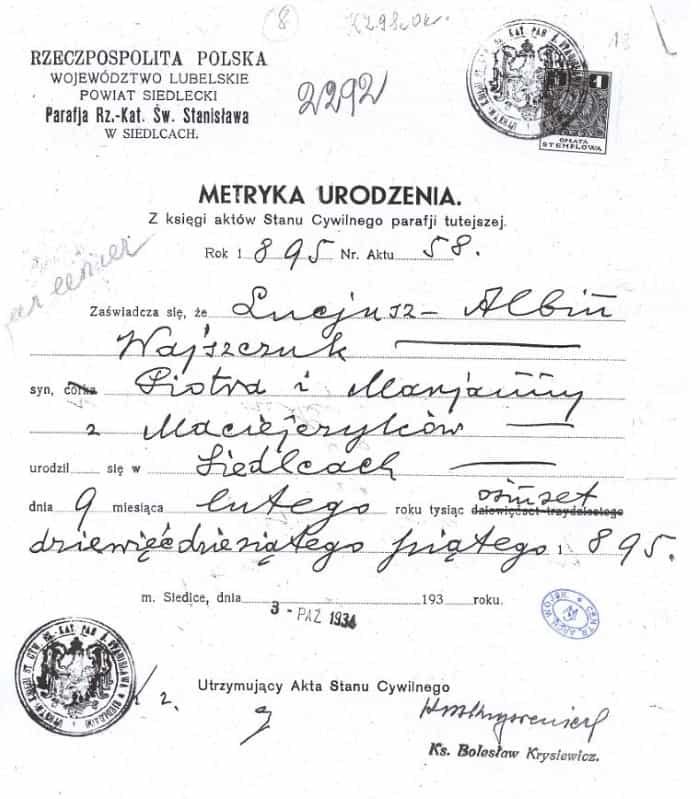 8
2292
RZECZPOSPOLITA POLSKA
WOJEWÓDZTWO LUBELSKIE
POWIAT SIEDLECKI
Parafja Rz.-Kat. Św. Stanisława
W SIEDLCACH.
1 1
OPŁATA
STEMPLOWA
METRYKA URODZENIA.
Z księgi aktów Stanu Cywilnego parafji tutejszej.
Rok 1895 Nr. Aktu 58.
Zaświadcza się, że Lucjusz-Albin
Wajszczuk
syn, córka Piotra i Marjanny
z Maciejczyków
urodził się w Siedlcach
dnia 9 miesiąca lutego roku tysiąc ośmset
dziewięćdziesiątego piątego 1895.
m. Siedlce, dnia 3 - PAZ 1934 193 roku.
Utrzymujący Akta Stanu Cywilnego
Ks. Bolesław Krysiewicz.